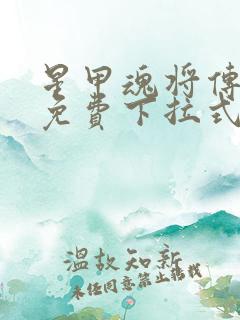 星甲魂将傳
免費下拉式
溫故知新
未经同意禁止轉載